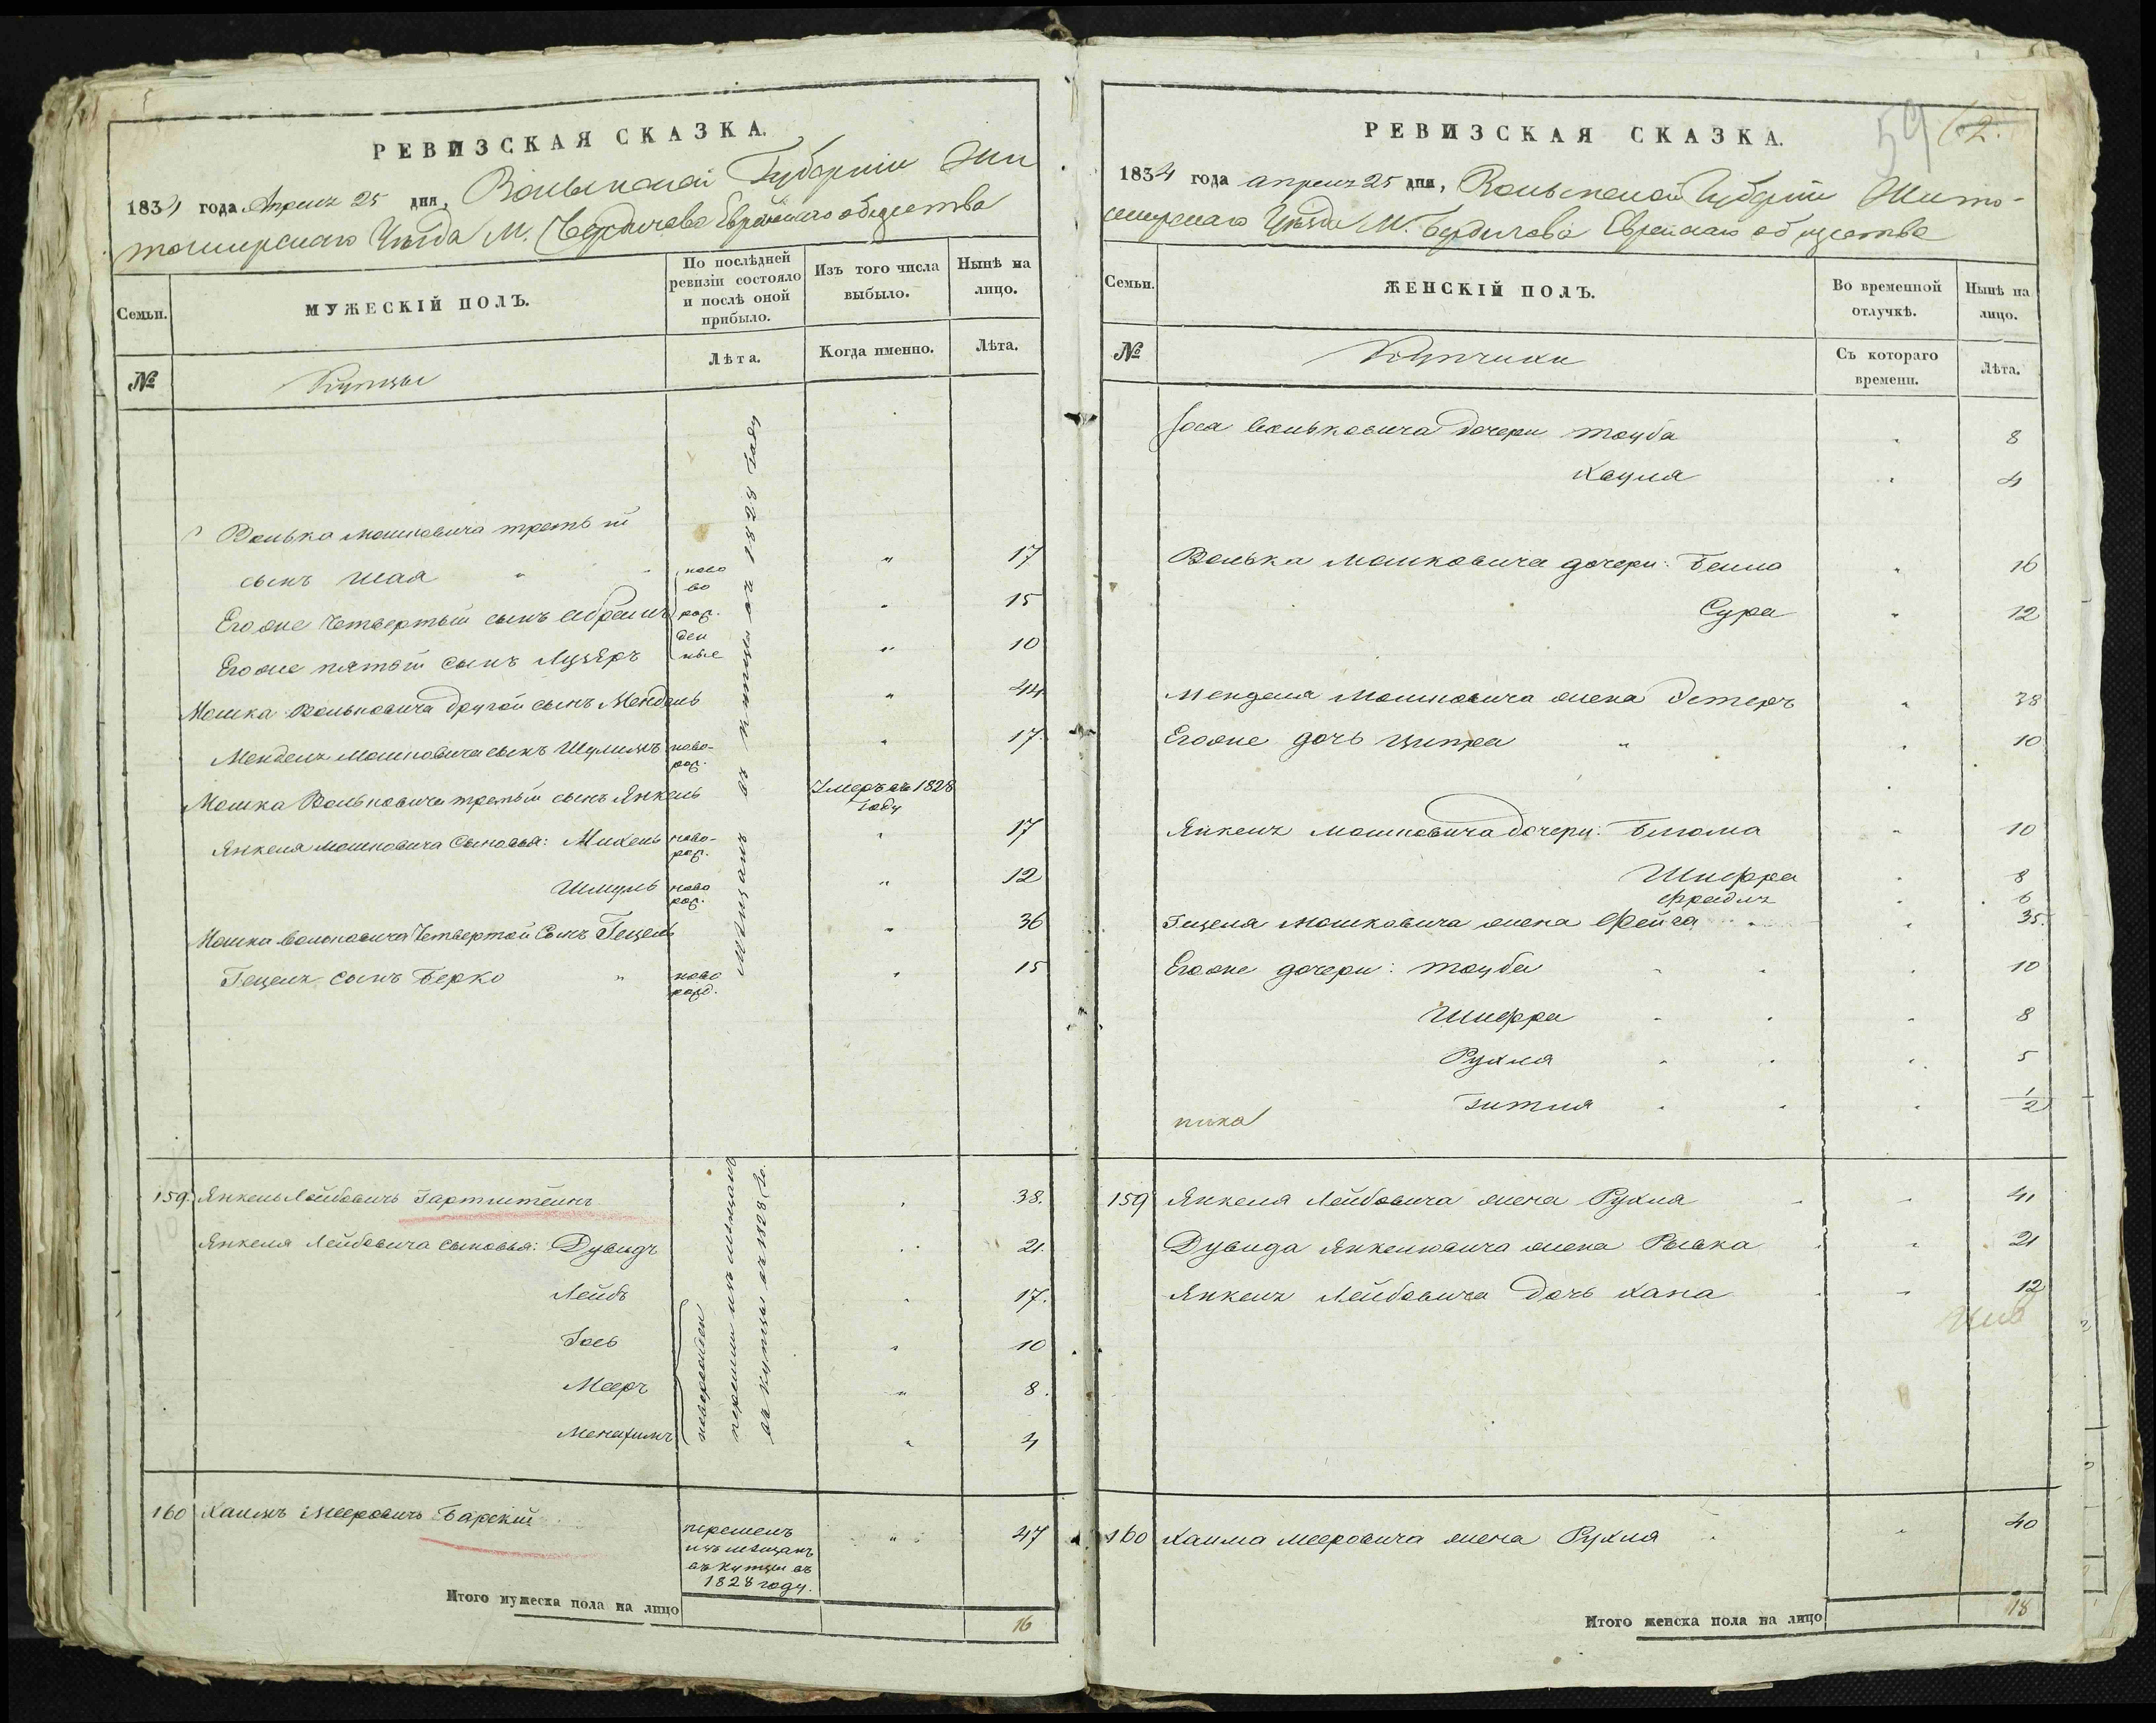 РЕВИЗСКАЯ СКАЗКА.
1834 года Апреля 25 дня, Волынской Губернии Жи
томирскаго Уѣзда М. Бердичева Еврейскаго общества
Семьи.
МУЖЕСКІЙ ПОЛЪ.
По послѣдней ревизіи состояло и послѣ оной прибыло.
Изъ того числа выбыло.
Нынѣ на лицо.
№
Купцы
Лѣта.
Когда именно.
Лѣта.
Волька Мошковича третьій
сынъ Шая " " ново 17
во
Егоже Четвертый сынъ Абрамъ рож. " 15
ден
Егоже пятый сынъ Лузеръ ные " 10
Мошка Вольковича другой сынъ Мендель " 44
Менделя Мошковича сынъ Шулимъ ново- " 17
рож.
Мошка Вольковича третьій сынъ Янкель Умеръ въ 1828
году
Янкеля Мошковича Сыновья: Михель ново- " 17
рож.
Шмуль ново " 12
рож.
Мошка Вольковича Четвертой Сынъ Гецель " 36
Гецеля сынъ Берко " ново " 15
рожд.
мѣщанъ въ купцы въ 1828 году
159. Янкель Лейбовичъ Гартштейнъ " 38.
Янкеля Лейбовича сыновья: Дувидъ " 21.
Лейбъ " 17.
Іось " 10
Мееръ " 8.
Менахимъ " 4
новорожден
перешли изъ мѣщанъ
въ купцы въ 1828 го.
160 Хаимъ Мееровичъ Барскій
перешелъ " 47
изъ мѣщанъ
въ купцы въ
1828 году.
Итого мужеска пола на лицо 16
РЕВИЗСКАЯ СКАЗКА.
59 62.
1834 года апреля 25 дня, Волынской Губерніи Жито-
мирскаго Уѣзда М. Бердичева Еврейскаго общества
Семьи.
ЖЕНСКІЙ ПОЛЪ.
Во временной отлучкѣ.
Нынѣ на лицо.
№
Купчихи
Съ котораго времени.
Лѣта.
Іося Вольковича дочери Тауба " 8
4
Волька Мошковича дочери: Бейла " 16
Сура " 12
Менделя Мошковича жена Эстеръ " 38
Егоже дочь Ципра " " 10
Янкеля Мошковича дочери: Блюма " 10
Шифра " 8
Фрейдля " 6
Гецеля Мошковича жена Фейга " " 35.
Егоже дочери: Тауба " " " 10
Шифра " " " 8
Рухля " " " 5
Гитля " " " 1/2
159 Янкеля Лейбовича жена Рухля " " 41
Дувида Янкелювича жена Рывка " " 21
Янкеля Лейбовича дочь Хана " " 12
160 Хаима Мееровича жена Рухля " " 40
Итого женска пола на лицо 18